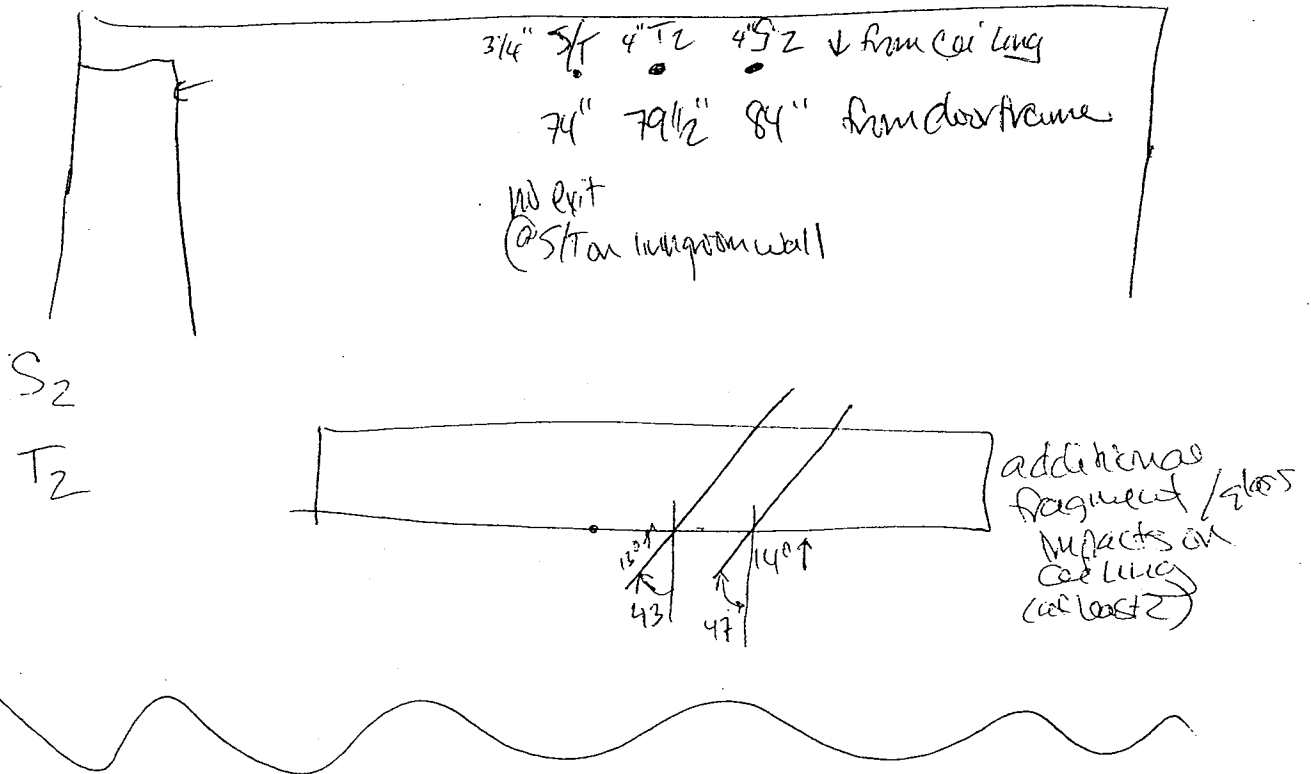 3/4" S/T 4" T2 4" S2 ↓ from ceiling
74" 79 1/2" 84" from doorframe
no exit
@ S/T on livingroom wall
S2
T2
13° ↑
43
14° ↑
47°
additional
fragment / glass
impacts on
ceiling
(at least 2)